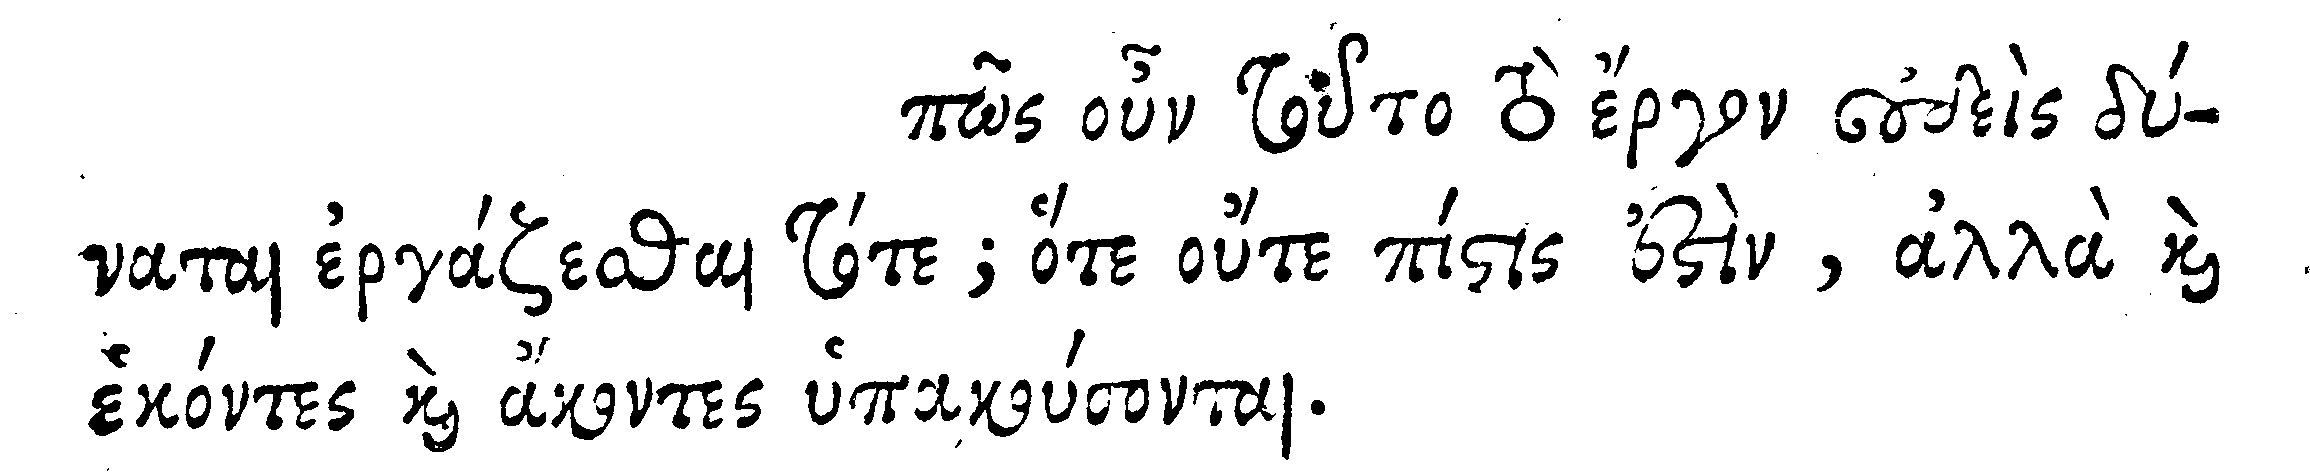 πῶς οὖν τοῦτο τὸ ἔργον οὐδεὶς δύ-
ναται ἐργάζεσθαι τότε; ὅτε οὔτε πίστις ἐστὶν, ἀλλὰ καὶ
ἑκόντες καὶ ἄκοντες ὑπακούσονται.